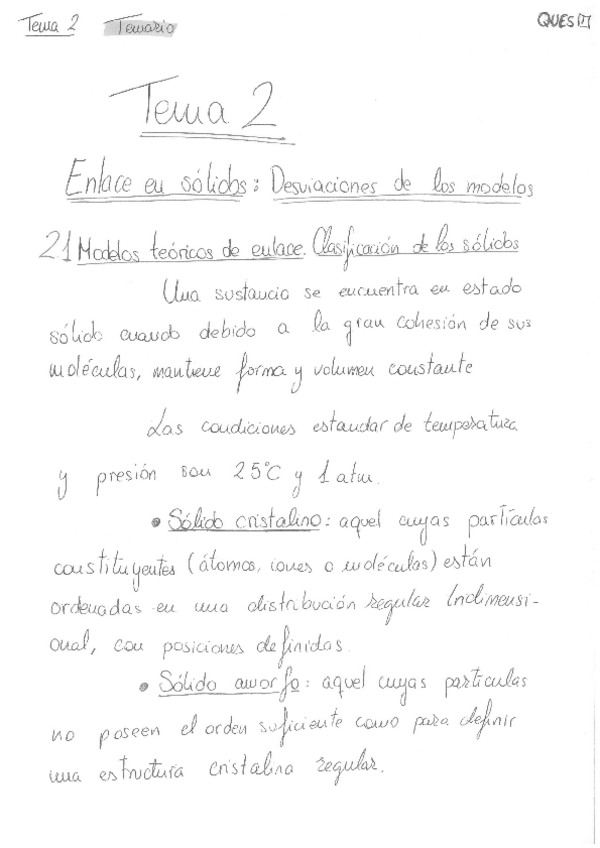 Tema 2 Temario
QUESII
Tema 2
Enlace en sólidos: Desviaciones de los modelos
2.1 Modelos teóricos de enlace. Clasificación de los sólidos
Una sustancia se encuentra en estado
sólido cuando debido a la gran cohesión de sus
moléculas, mantiene forma y volumen constante
Las condiciones estandar de temperatura
y presión son 25°C y 1 atm.
• Sólido cristalino: aquel cuyas partículas
constituyentes (átomos, iones o moléculas) están
ordenadas en una distribución regular tridimensi-
onal, con posiciones definidas.
• Sólido amorfo: aquel cuyas particulas
no poseen el orden suficiente como para definir
una estructura cristalina regular.